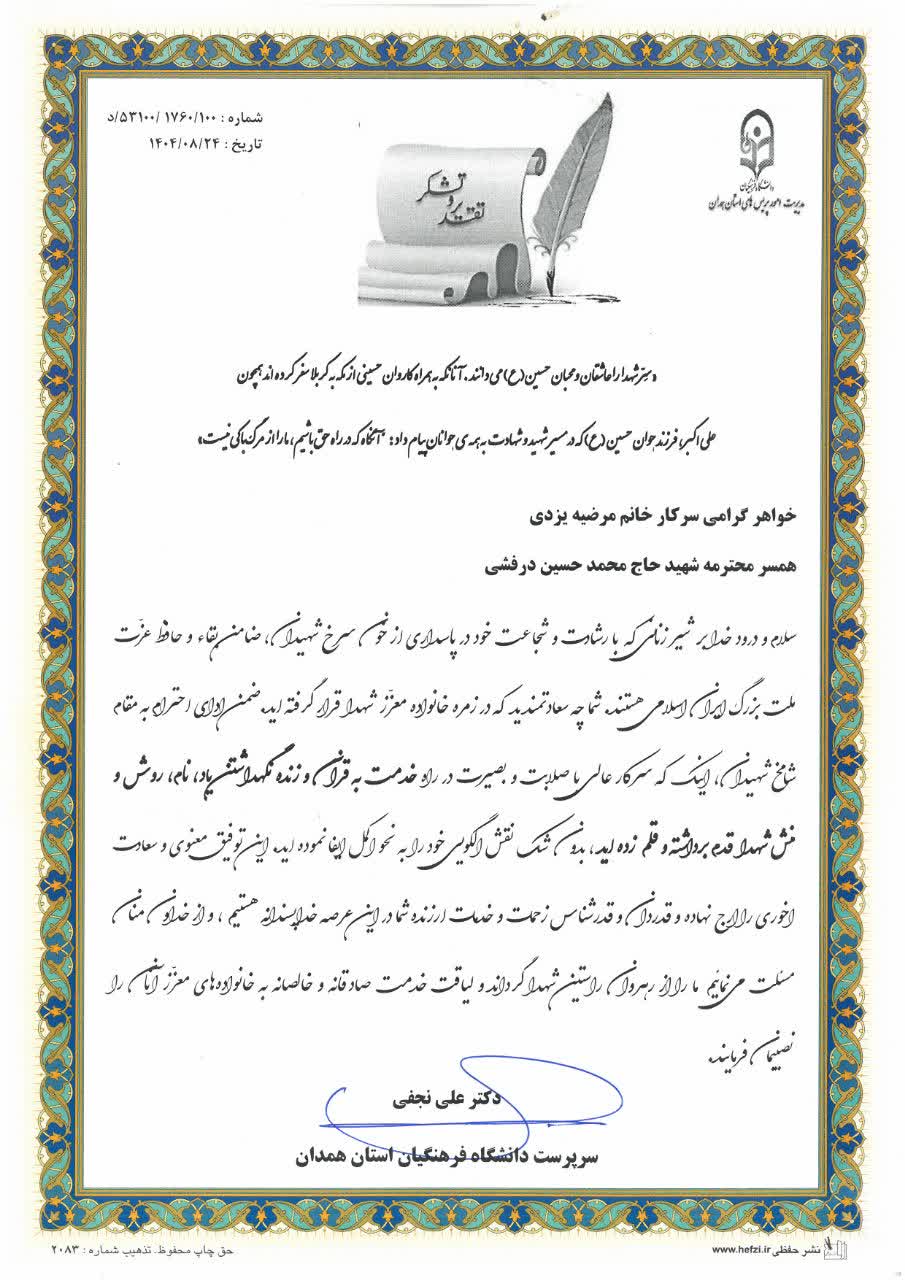 شماره : ۱۷۶۰/۱۰۰ /۵۳۱۰۰/د
تاریخ : ۱۴۰۴/۰۸/۲۴
دانشگاه فرهنگیان
مدیریت امور پردیس های استان همدان
تقدیر و تشکر
«سرّ شهدا را عاشقان و محبان حسین (ع) می دانند، آنانکه به همراه کاروان حسینی از مکه به کربلا سفر کرده اند همچون
علی اکبر، فرزند جوان حسین (ع) که در مسیر شهید و شهادت به همه ی جوانان پیام داد؛ "آنگاه که در راه حق باشیم، ما را از مرگ باکی نیست»
خواهر گرامی سرکار خانم مرضیه یزدی
همسر محترمه شهید حاج محمد حسین درفشی
سلام و درود خدا بر شیر زنانی که با رشادت و شجاعت خود در پاسداری از خون سرخ شهیدان، ضامن بقاء و حافظ عزّت
ملت بزرگ ایران اسلامی هستند. شما چه سعادتمندید که در زمره خانواده معزّز شهدا قرار گرفته اید. ضمن ادای احترام به مقام
شامخ شهیدان، اینک که سرکار عالی با صلابت و بصیرت در راه خدمت به قرآن و زنده نگهداشتن یاد، نام، روش و
منش شهدا قدم برداشته و قلم زده اید، بدون شک نقش الگویی خود را به نحو اکمل ایفا نموده اید. این توفیق معنوی و سعادت
اخروی را ارج نهاده و قدردان و قدرشناس زحمات و خدمات ارزنده شما در این عرصه خداپسندانه هستیم ، و از خداوند منان
مسئلت می نمائیم ما را از رهروان راستین شهدا گرداند و لیاقت خدمت صادقانه و خالصانه به خانواده های معزّز آنان را
نصیبمان فرمایند.
دکتر علی نجفی
سرپرست دانشگاه فرهنگیان استان همدان
حق چاپ محفوظ. تذهیب شماره : ۲۰۸۳
نشر حفظی www.hefzi.ir